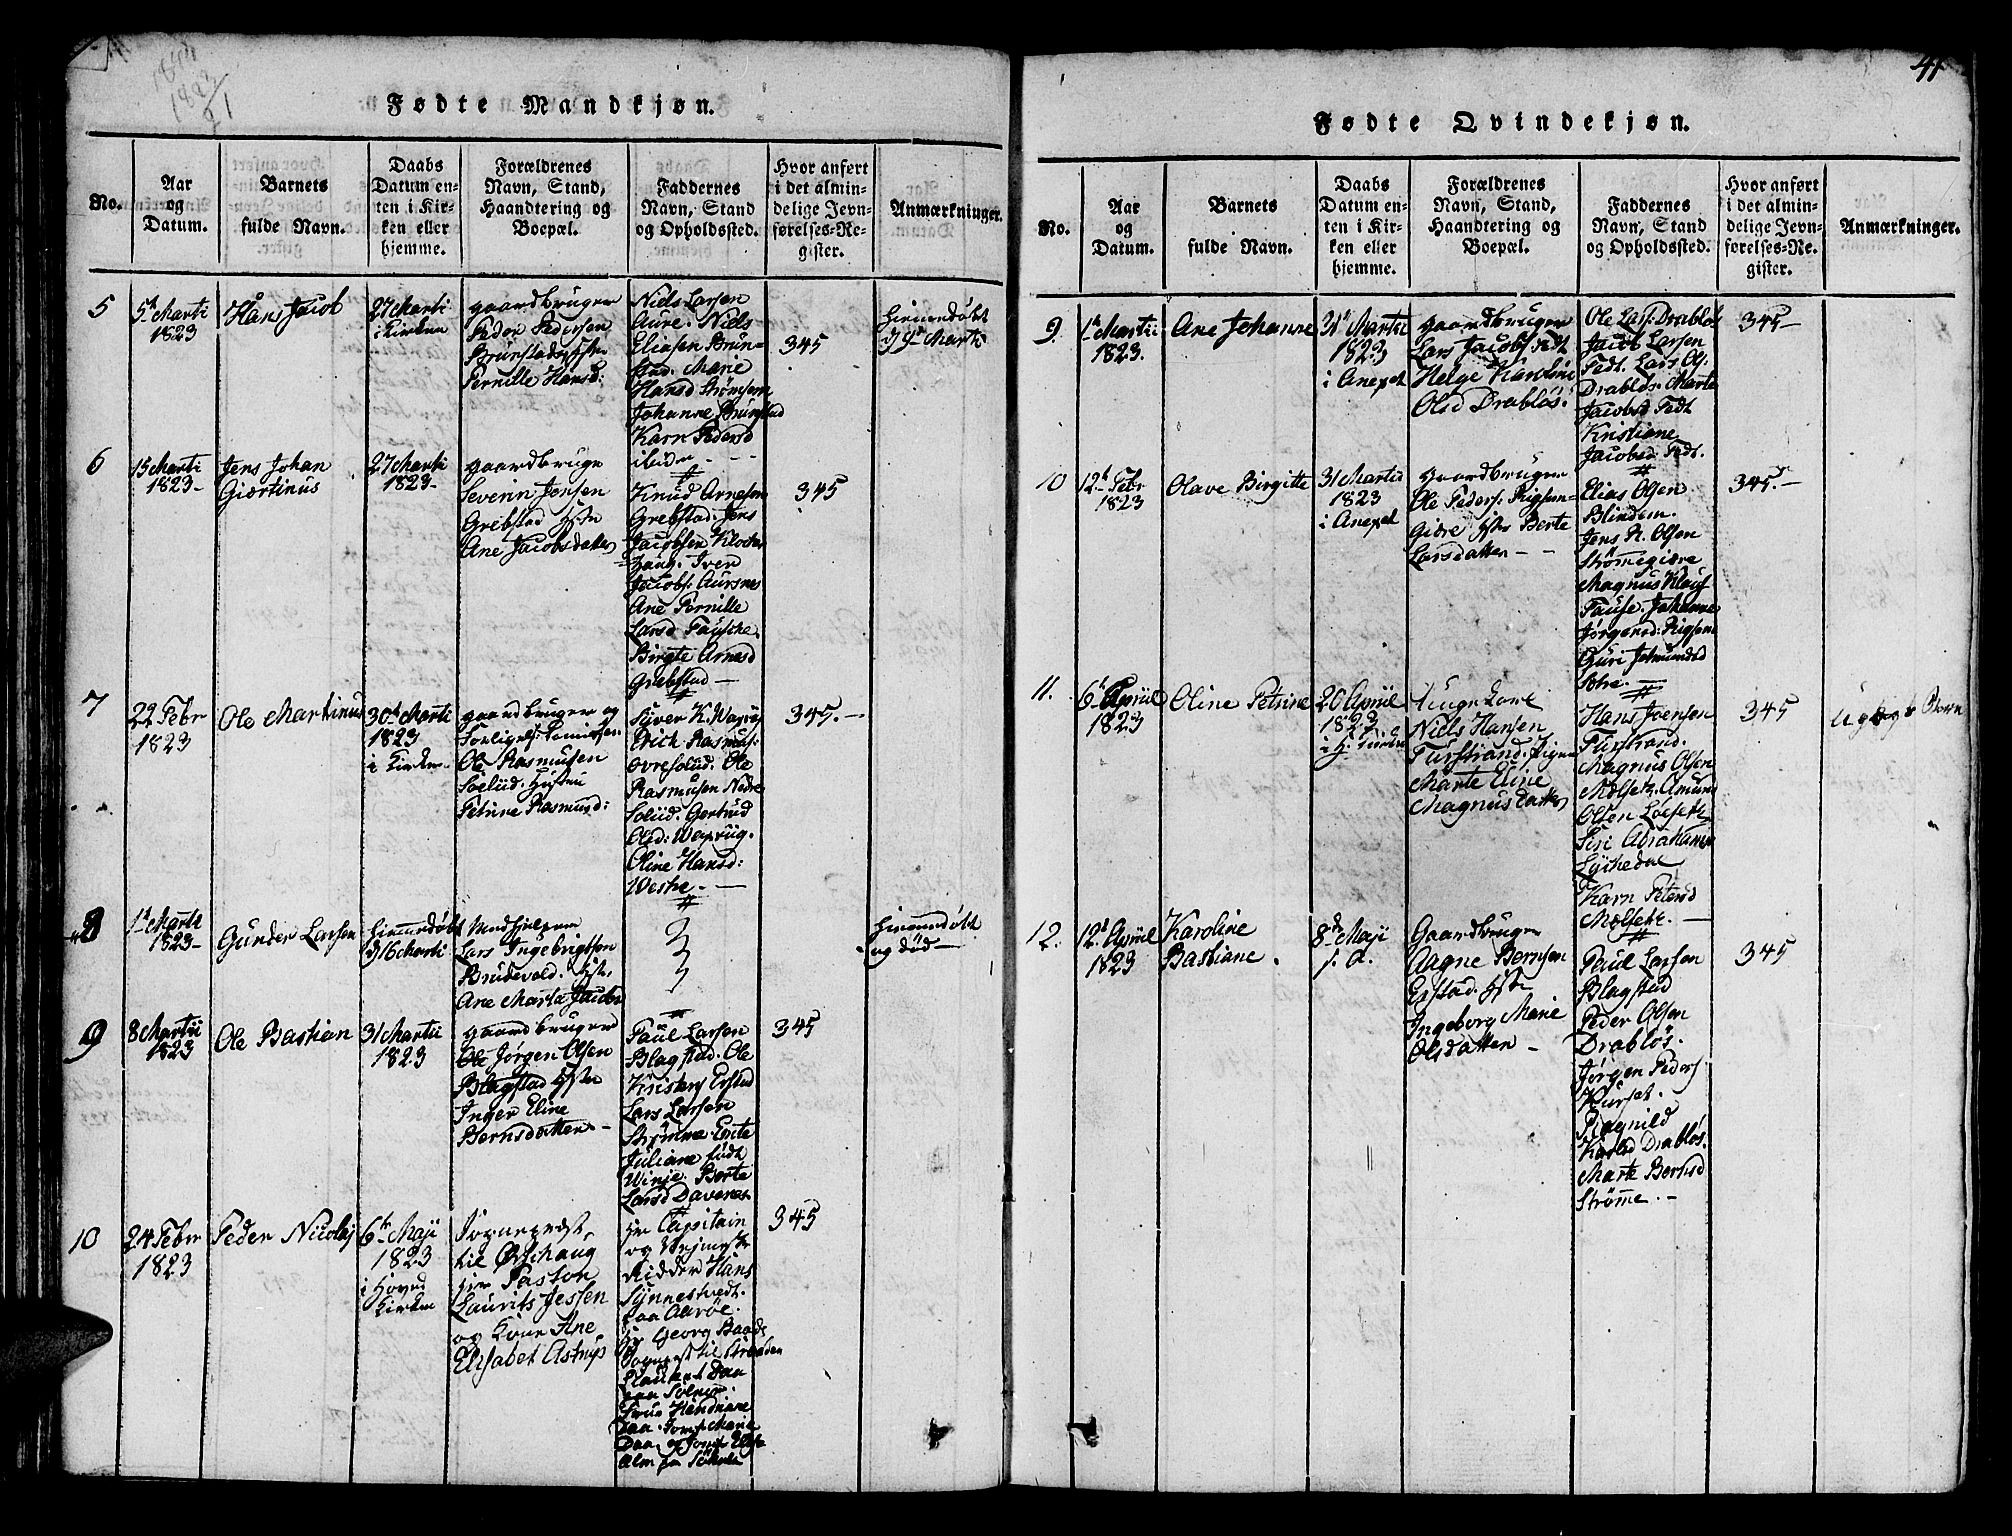 41
Fødte Mandkjøn.
No.
Aar
og
Datum.
Barnets
fulde Navn.
Daabs
Datum en-
ten i Kir-
ken eller
hjemme.
Forældrenes
Navn, Stand,
Haandtering og
Boepæl.
Faddernes
Navn, Stand
og Opholdssted.
Hvor anført
i det almin-
delige Jevn-
førelses-Re-
gister.
Anmærkninger.
5
5t Marti
1823
Hans Jacob
27 Marti
i Kirken
gaardbruger
Peder Pedersen
Brunstad hstr
Pernille Hansd:
Niels Larsen
Aure. Niels
Eliasen Brun-
stad. Marie
Hansd Strømsem
Johanne Brunstad
Karn Pedersd
ibidem - - -
345
Hiemmedøbt
d 9t Marti
6
15 Marti
1823-
Jens Johan
Giertinus
27 Marti
1823-
gaardbruger
Severin Jensen
Grebstad hstr
Ane Jacobsdatter
Knud Arnesen
Grebstad. Jens
Jacobsen Klocker-
haug. Iver
Jacobs: Aursnes
Ane Pernille
Larsd Fausche
Birgte Arnesd
Grebstad -
345
7
22 Febr
1823
Ole Martinus
30t Marti
1823
i Kirken
gaardbruger og
Ole Rasmusen
Soelud. Hustru
Petrine Rasmusd:
Siver K.
Erich Rasmus:
ovresolud. Ole
Rasmusen Nedre
Solud. Gertrud
Olsd:
Oline Hansd:
Westre. -
345.-
8
1t Marti
1823-
Gunder Larsen
Hiemmedøbt
d 16 Marti
Madhjelpem
Lars Ingebrigtsen
Brudevold. hstr.
Ane Marta Jacobs
Hiemmedøbt
og død -
9
8 Martii
1823
Ole Bastian
31 Martii
1823
gaardbruger
Ole Jørgen Olsen
Blagstad hstr
Inger Eline
Berntsdatter -
Paul Larsen
Blagstad. Ole
Kristens Erstad
Lars Larsen
Strømme. Ente
Juliane født
Winje. Berte
Larsd Davenes
345
10
24 Febr
1823
Peder Nicolaj
6te Maji
1823
i Hoved
Kirken
Sognepræst
til Ørschoug
Hr Pastor
Laurits Jessen
og Kone Ane
Elisabet Astrup
Hr Capitain
og Vejmestr
Ridder Hans
Synnestvedt.
paa Aarøe.
Hr Georg Baade
Sognepst til Stranden
Daa
paa Solnør.
Frue Hendriane
Daa. Jomf. Marie
Daa og Jomf Else
Alm
345
Fødte Qvindekjøn.
No.
Aar
og
Datum.
Barnets
fulde Navn.
Daabs
Datum en-
ten i Kir-
ken eller
hjemme.
Forældrenes
Navn, Stand,
Haandtering og
Boepæl.
Faddernes
Navn, Stand
og Opholdssted.
Hvor anført
i det almin-
delige Jevn-
førelses-Re-
gister.
Anmærkninger.
9.
1t Martii
1823.
Ane Johanne
31t Martii
1823
i Anexet
gaardbruger
Lars Jacobs Fedt
Helge Karoline
Olsd Drabløs:
Ole Lars: Drabløs
Jacob Larsen
Fedt. Lars Ol:
Drabløs. Marte
Jacobsd Fedt
Kristiane
Jacobsd Fedt.
345-
10
12t Febr
1823
Olave Birgitte
31 Martii
1823
i Anexet
gaardbruger
Ole Peders: Rigsem-
Giære hstr Berte
Larsdatter - -
Elias Olsen
Blindem.
Jens A. Olsen
Strømegiære
Magnus Klaus
Fause. Johanne
Jørgensd: Rigsem
Guri Jetmundsd
Sotre. -
345.-
11.
6t Apriil
1823
Oline Petrine
20 Apriil
1823
i H: Kirken
Ungkarl
Niels Hansen
Furstrand. Pigen
Marte Eline
Magnusdatter
Hans Joensen
Furstrand.
Magnus Olsen
Molset. Amund
Olsen Løeseth
Siri Abrahamsd
Lychedal
Karn Petersd
Molset. -
345
Uægte Barn
12.
12t Apriil
1823
Karoline
Bastiane.
8de Maji
s. a.
Gaardbruger
Aagne Berntsen
Erstad. hstr
Ingeborg Marie
Olsdatter -
Paul Larsen
Blagstad
Peder Olsen
Drabløs.
Jørgen Peders
Kurset.
Ragnild
Karlsd Drabløs.
Marte Berntsd
Strømme. -
345